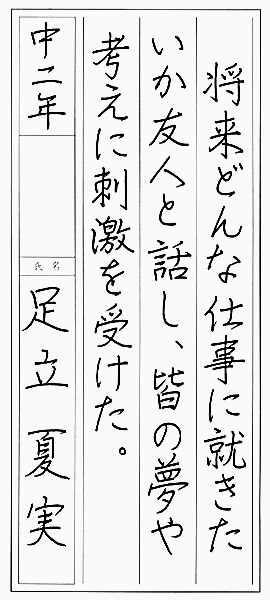 将来どんな仕事に就きた
いか友人と話し、皆の夢や
考えに刺激を受けた。
中二年
氏名
足立夏実